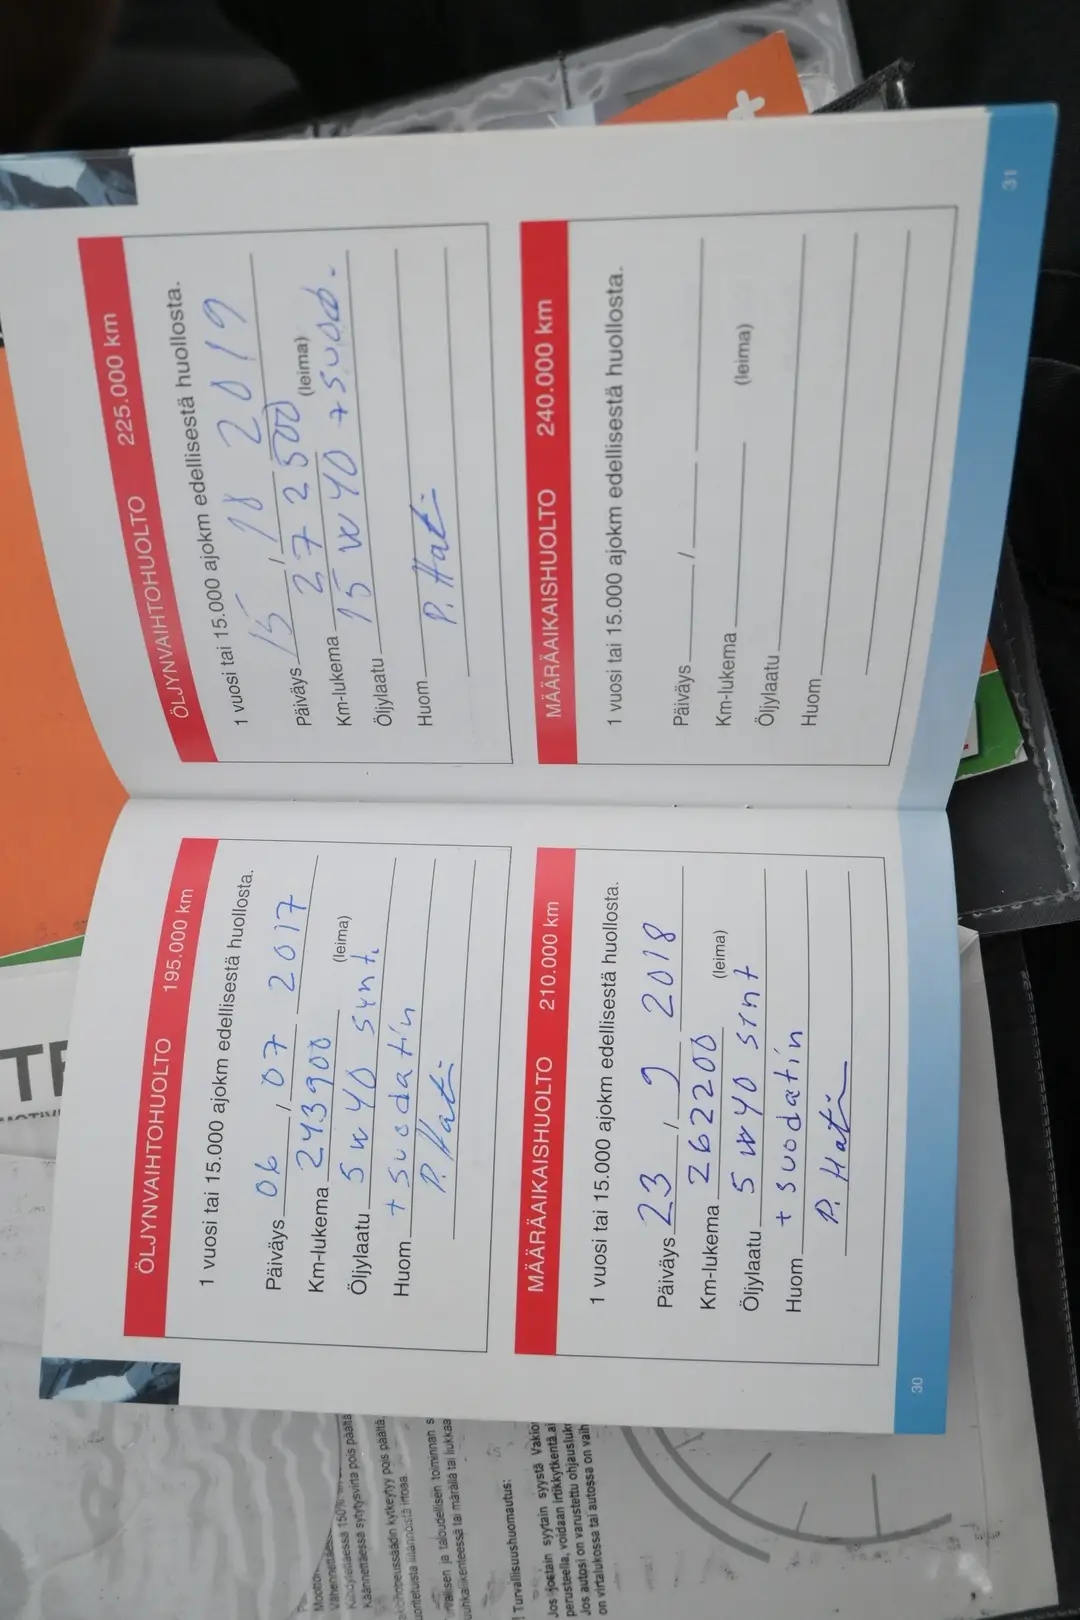 ÖLJYNVAIHTOHUOLTO 195.000 km
1 vuosi tai 15.000 ajokm edellisestä huollosta.
Päiväys 06 / 07 2017
Km-lukema 243900 (leima)
Öljylaatu 5w40 synt.
Huom + suodatin
P. Hati
MÄÄRÄAIKAISHUOLTO 210.000 km
1 vuosi tai 15.000 ajokm edellisestä huollosta.
Päiväys 23 / 9 2018
Km-lukema 262200 (leima)
Öljylaatu 5w40 synt
Huom + suodatin
P. Hati
30
ÖLJYNVAIHTOHUOLTO 225.000 km
1 vuosi tai 15.000 ajokm edellisestä huollosta.
Päiväys 15 / 2019
Km-lukema 272500 (leima)
Öljylaatu 15w40 + suod.
Huom P. Hati
MÄÄRÄAIKAISHUOLTO 240.000 km
1 vuosi tai 15.000 ajokm edellisestä huollosta.
Päiväys /
Km-lukema (leima)
Öljylaatu
Huom
31
käännettäessä sytytysvirta pois päältä
! Turvallisuushuomautus:
Jos jostain syytain syystä
perusteella, voidaan irtikytkentä
Jos autosi on varustettu
on virtalukossa tai autossa on